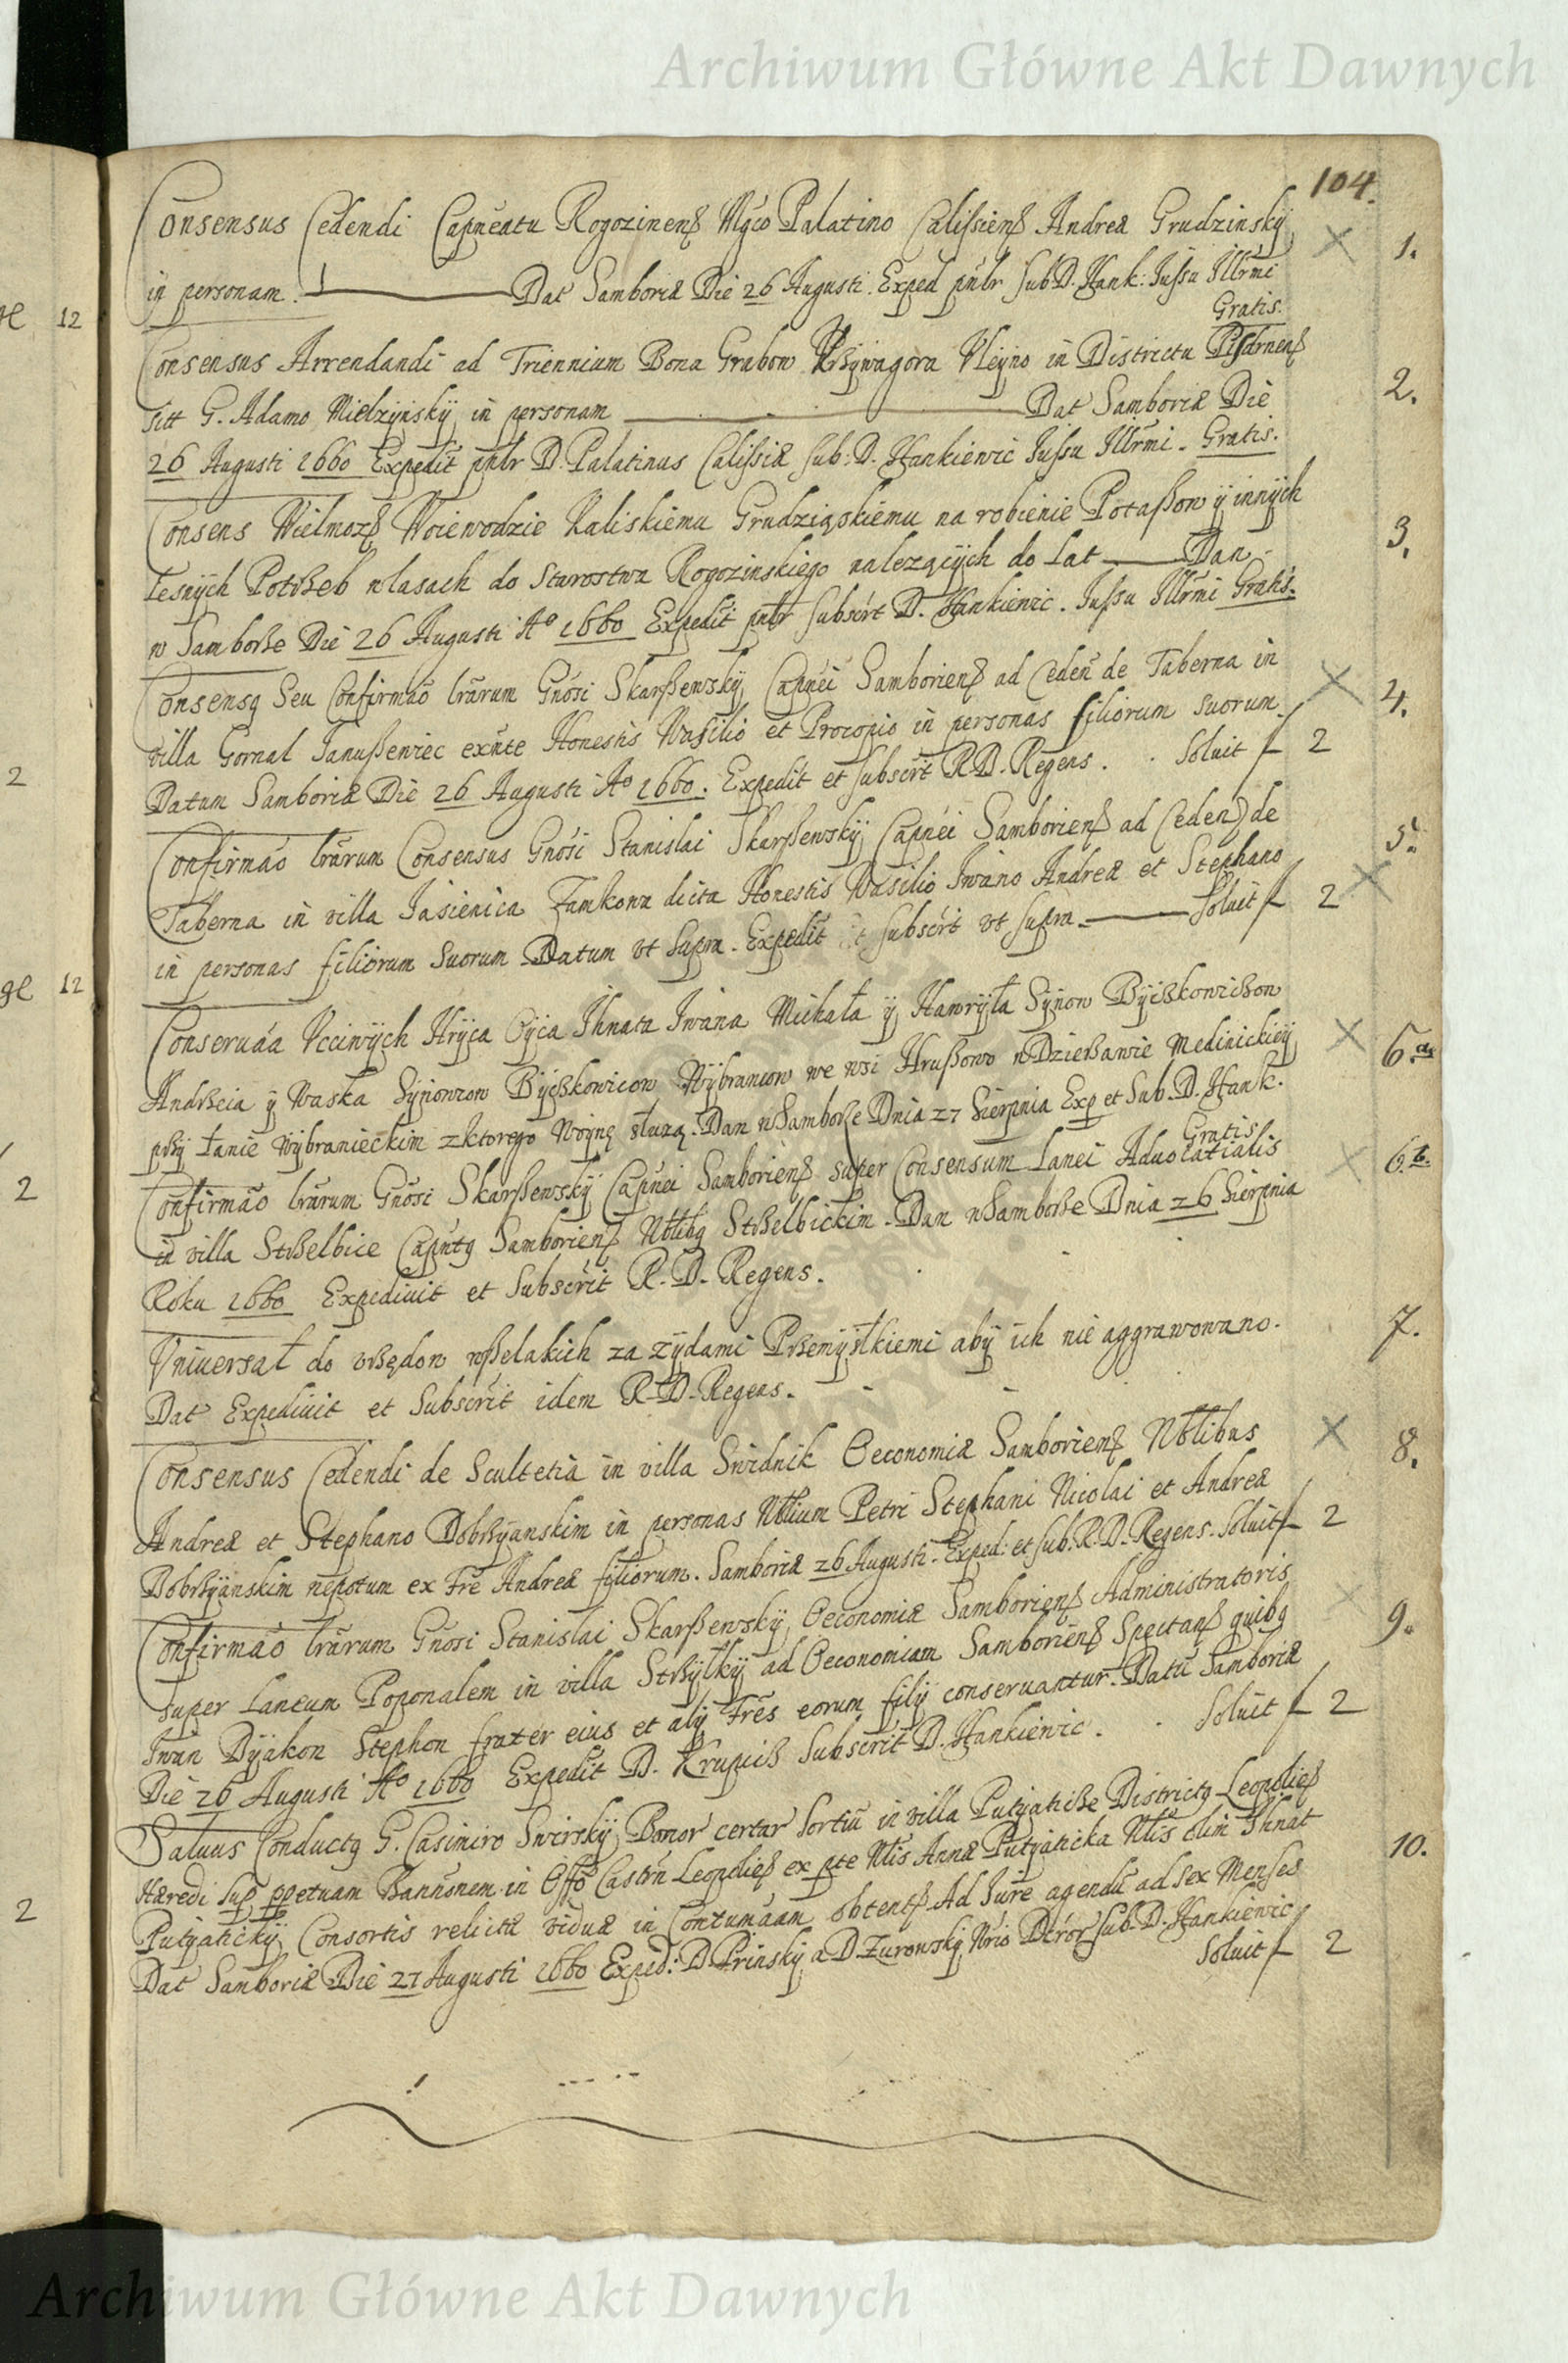 Archiwum Główne Akt Dawnych
104.
Consensus Cedendi Capneatu Rogozinens Mgco Palatino Calissiens Andreæ Grudzinsky 1.
in personam. Dat Samboriæ Die 26 Augusti. Exped pntr Sub D. Hank: Jussu Illrmi
Gratis.
Consensus Arrendandi ad Triennium Bona Grabow Uleyno in Districtu
sitt G. Adamo Mielzynsky in personam Dat Samboriæ Die 2.
26 Augusti 1660 Expedit pntr D. Palatinus Calissiæ sub: D. Hankiewic Jussu Illrmi. Gratis.
Consens Wielmoz Woiewodzie Kaliskiemu Grudzinskiemu na robienie Potaßow ÿ innÿch
Lesnÿch Potrzeb wlasach do Starostwa Rogozinskiego nalezącÿch do Lat Dan 3.
w Samborze Die 26 Augusti Ao 1660 Expedit pntr subscrt D. Hankiewic. Jussu Illrmi Gratis.
Consensq Seu Confirmao lrarum Gnosi Skarßewsky Capnei Samboriens ad Ceden de Taberna in
villa Gornal Janußewiec exnte Honestis Wasilio et Procopio in personas filiorum suorum 4.
Datum Samboriæ Die 26 Augusti Ao 1660. Expedit et subscrt R. D. Regens. Soluit f 2
Confirmao lrarum Consensus Gnosi Stanislai Skarßewsky Capnei Samboriens ad Ceden de 5.
Taberna in villa Jasienica Zamkowa dicta Honestis Wasilio Iwano Andreæ et Stephano
in personas filiorum suorum Datum vt supra. Expedit et subscrt vt supra. Soluit f 2
Conseruaa Vcciwÿch Hrÿca Ihnata Iwana Michała ÿ Hawrÿła Sÿnow
Andrzeia ÿ Waska Sÿnowcow Wÿbrancow we wsi Hrußowo wDzierzawie Medinickieÿ 6.a
przÿ łanie wÿbranieckim zktorego Woÿnę służą. Dan wSamborze Dnia 27 Sierpnia Exp et Sub. D. Hank.
Gratis
Confirmao lrarum Gnosi Skarßewsky Capnei Samboriens super Consensum Lanei Aduocatialis 6.b.
in villa Strzelbice Capntq Samboriens Nblibq Strzelbickim. Dan wSamborze Dnia 26 Sierpnia
Roku 1660 Expediuit et Subscrit R. D. Regens.
Vniuersał do vrzędow wßelakich za zÿdami Przemÿslkiemi abÿ ich nie aggrawowano. 7.
Dat Expediuit et Subscrit idem R. D. Regens.
Consensus Cedendi de Scultetia in villa Swidnik Oeconomiæ Samboriens Nblibus 8.
Andreæ et Stephano Dobrzÿanskim in personas Nblium Petri Stephani Nicolai et Andreæ
Dobrzÿanskim nepotum ex Fre Andrea filiorum. Samboriæ 26 Augusti. Exped: et sub. R. D. Regens. Soluit f 2
Confirmao lrarum Gnosi Stanislai Skarßewsky Oeconomiæ Samboriens Administratoris
super Laneum Poponalem in villa Strzÿłkÿ ad Oeconomiam Samboriens Spectans quibq 9.
Iwan Dÿakon Stephon frater eius et alÿ Fres eorum filÿ conseruantur. Datu Samboriæ
Die 26 Augusti Ao 1660 Expedit D. Krupicz Subscrit D. Hankiewic. Soluit f 2
Saluus Conductq G. Casimiro Swirsky Bonor certar Sortiu in villa Putÿaticze Districtq Leopolies
Hæredi sup ppetuam Bannonem in Offo Castrn Leopolies ex pte Nlis Annæ Putÿaticka Nlis olim Ihnat 10.
Putÿaticky Consortis relictæ viduæ in Contumaam obtent. Ad Iure agendu ad sex Menses
Dat Samboriæ Die 27 Augusti 1660 Exped: D. Prinsky a D. Zurowsky Nrio Dcror sub. D. Hankiewic
Soluit f 2
12
2
12
2
2
Archiwum Główne Akt Dawnych